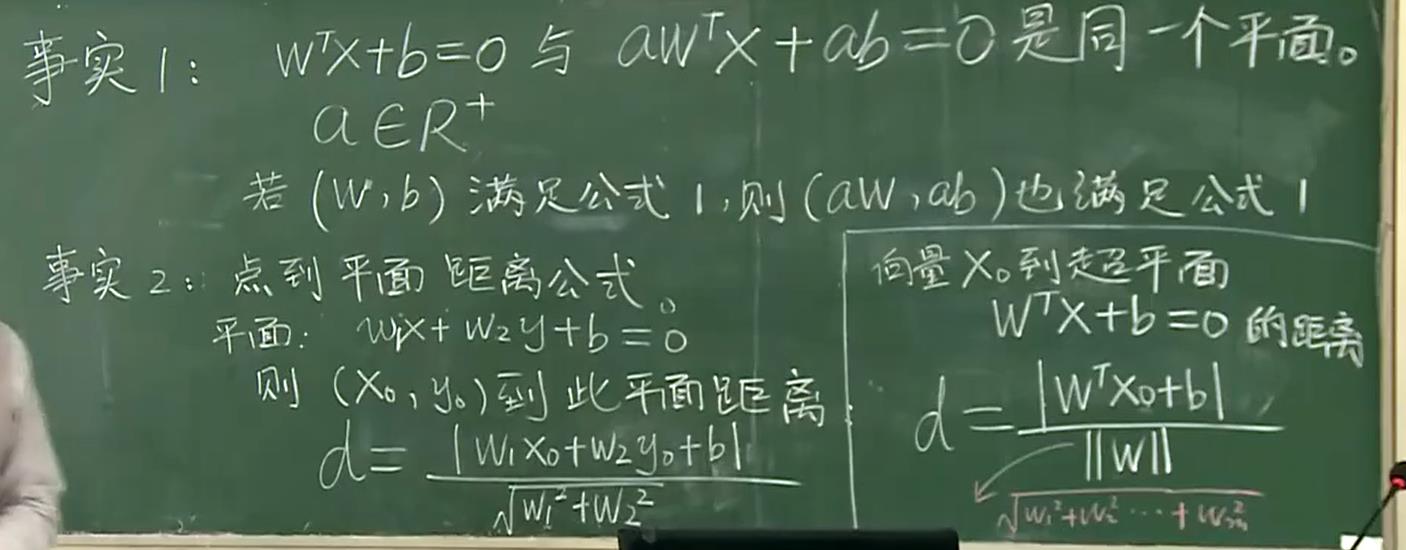 事实1: WᵀX+b=0 与 aWᵀX+ab=0 是同一个平面。
a∈R⁺
若 (W,b) 满足公式1,则(aW,ab)也满足公式1
事实2: 点到平面距离公式。
平面: w₁x+w₂y+b=0
则 (x₀,y₀)到此平面距离
d=|w₁x₀+w₂y₀+b|/√w₁²+w₂²
向量X₀到超平面
WᵀX+b=0 的距离
d=|WᵀX₀+b|/‖W‖
√w₁²+w₂²…+wₘ²